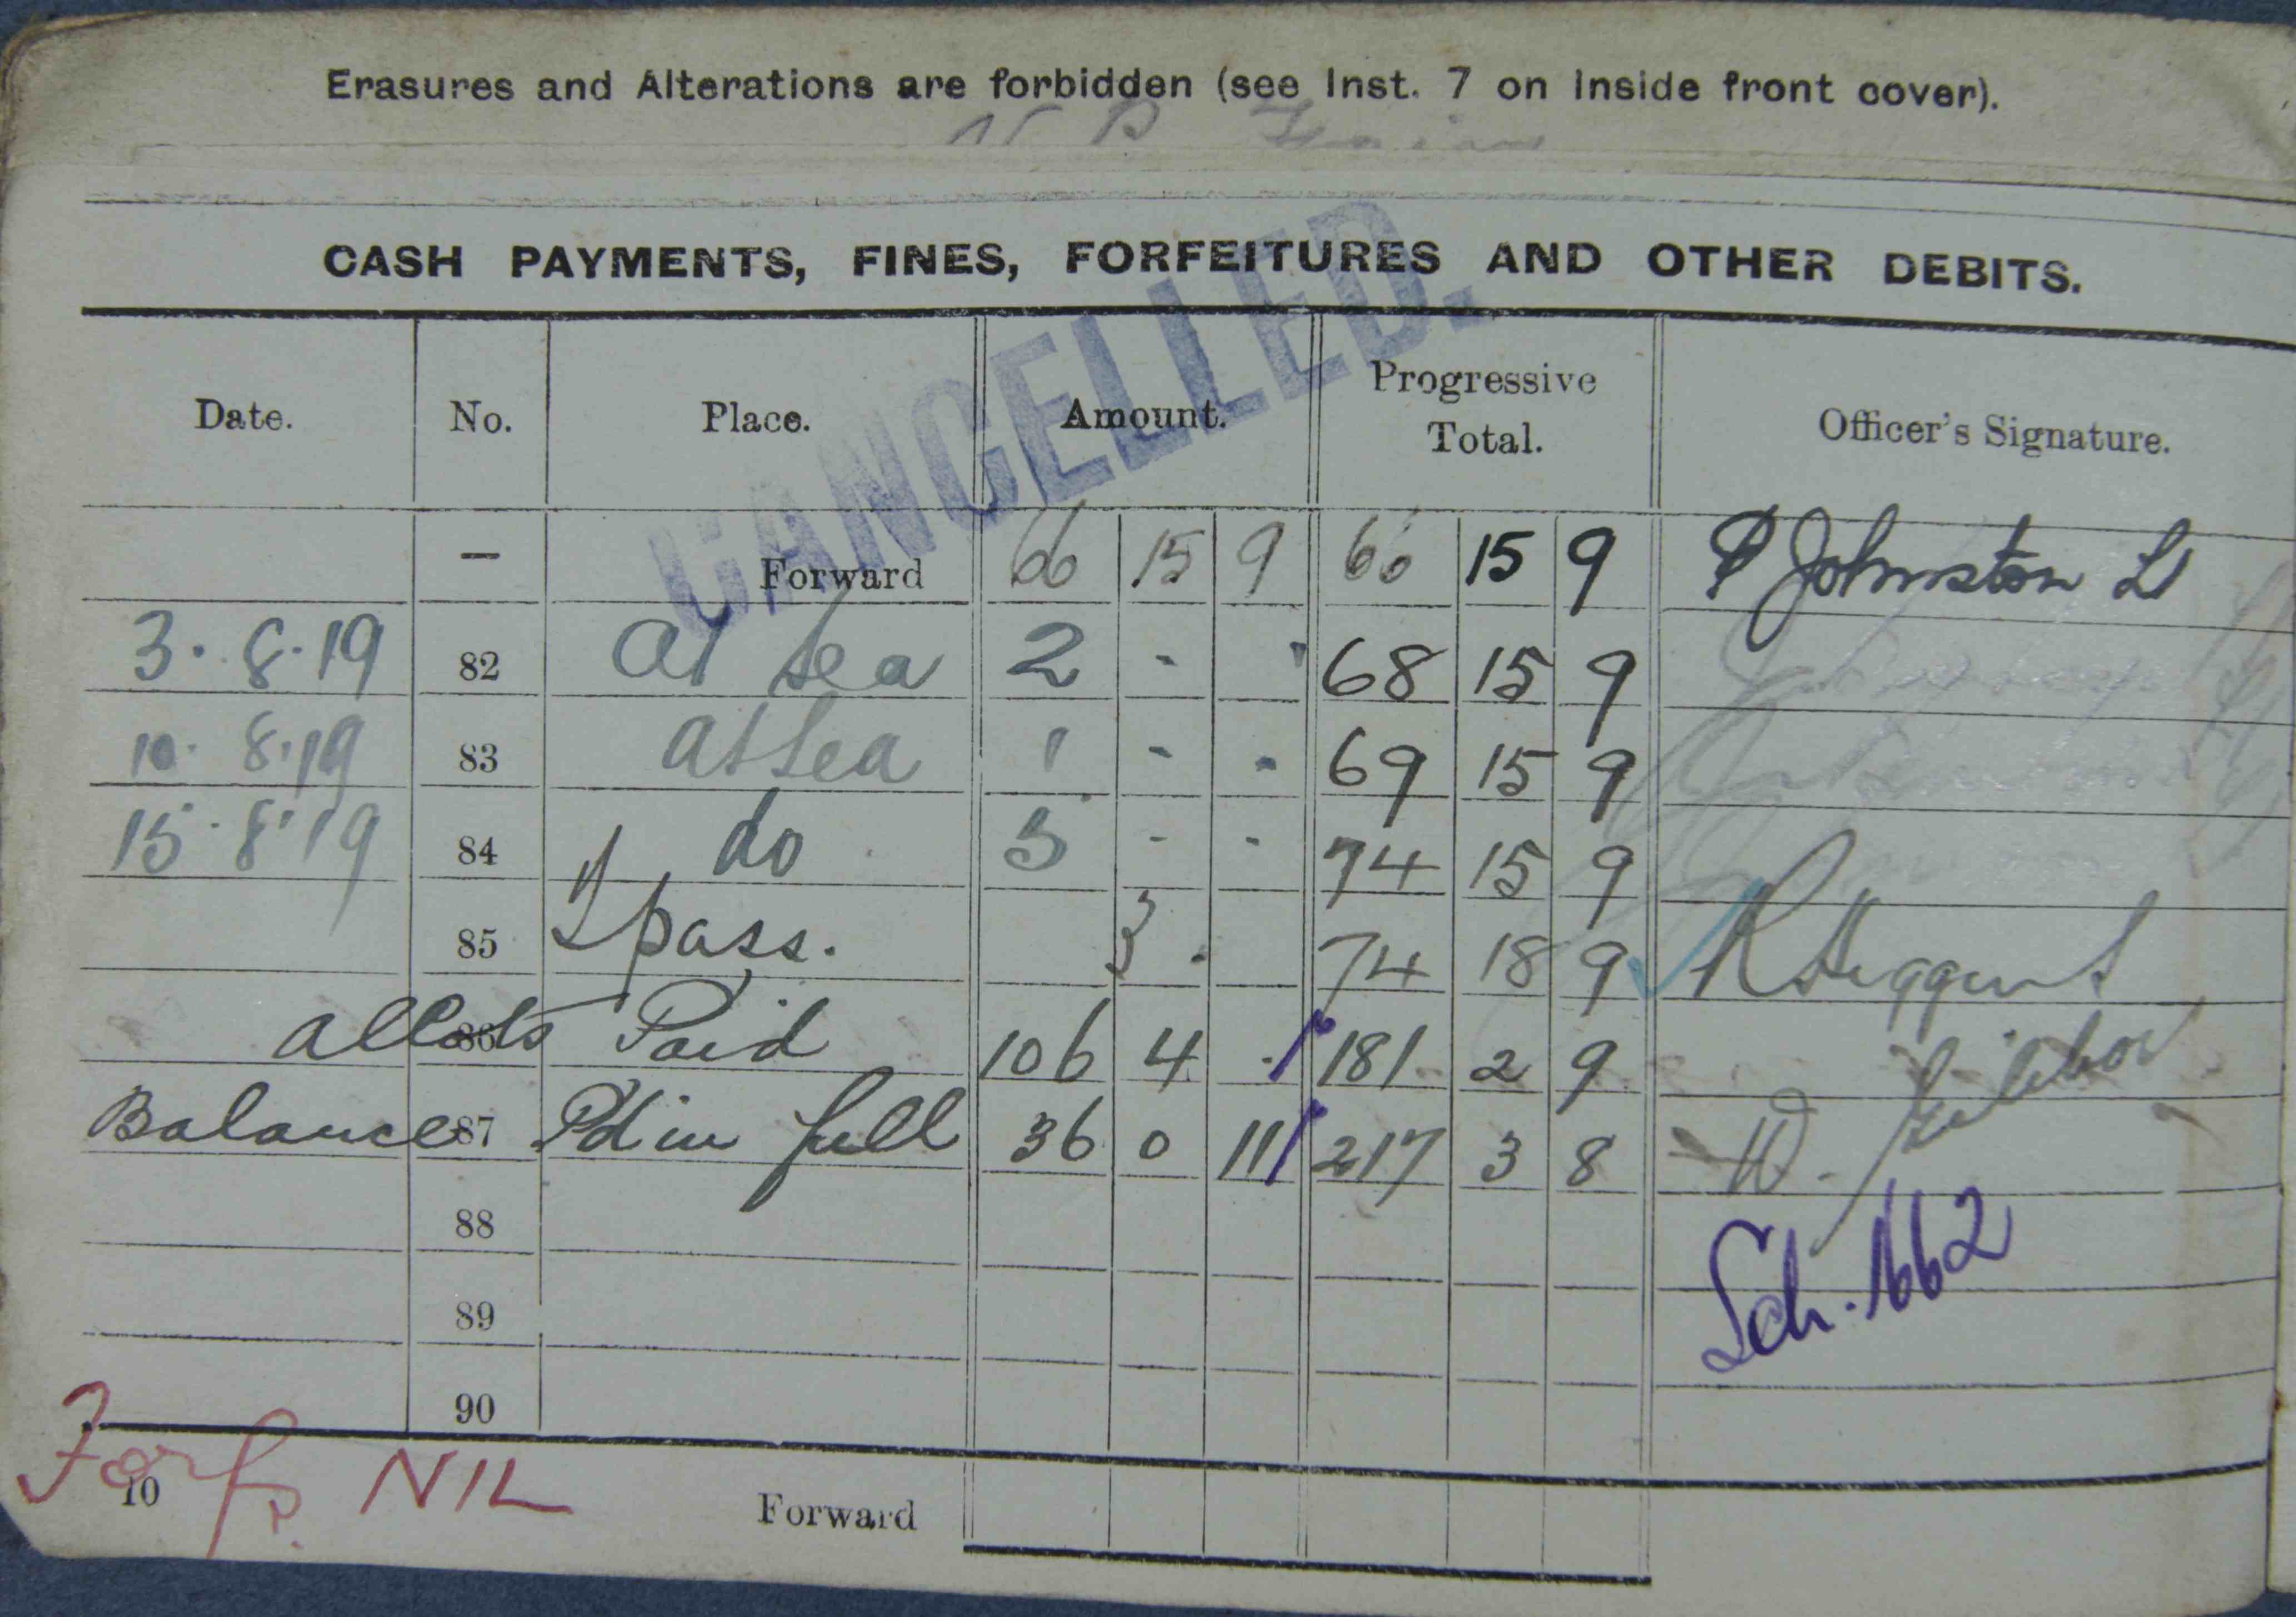 Erasures and Alterations are forbidden (see Inst. 7 on inside front cover).
CASH PAYMENTS, FINES, FORFEITURES AND OTHER DEBITS.
CANCELLED.
Date. No. Place. Amount. Progressive Total. Officer's Signature.
— Forward 66 15 9 66 15 9 P Johnston Lt
3.8.19 82 At Sea 2 - - 68 15 9
10.8.19 83 At Sea 1 - - 69 15 9
15.8.19 84 do 5 - - 74 15 9
85 pass. 3 . 74 18 9
Allots 86 Paid 106 4 - 181 2 9
Balance 87 Pd in full 36 0 11 217 3 8 W.
88
Sch. 1662
89
90
Forf. NIL
10 Forward